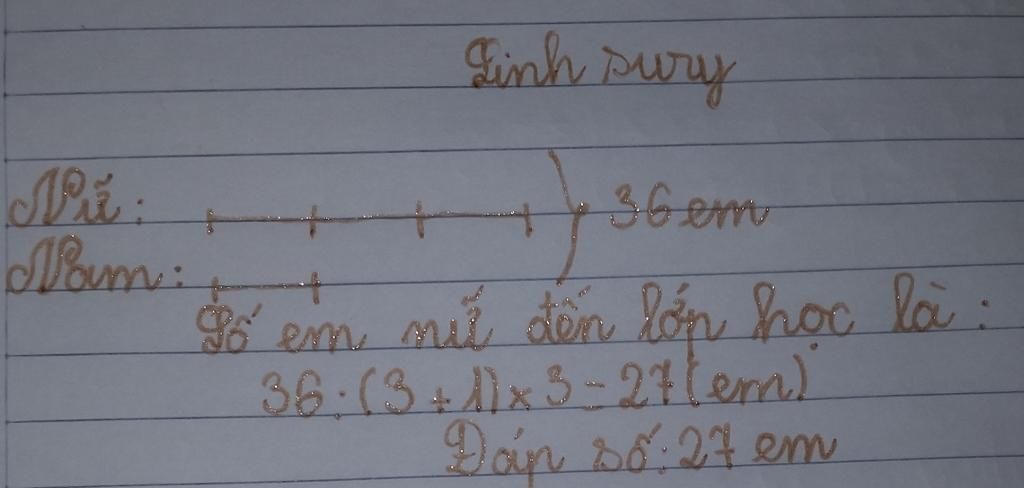 Linh suy
Nữ:
36 em
Nam:
Số em nữ đến lớp học là:
36:(3+1)×3=27(em)
Đáp số:27 em